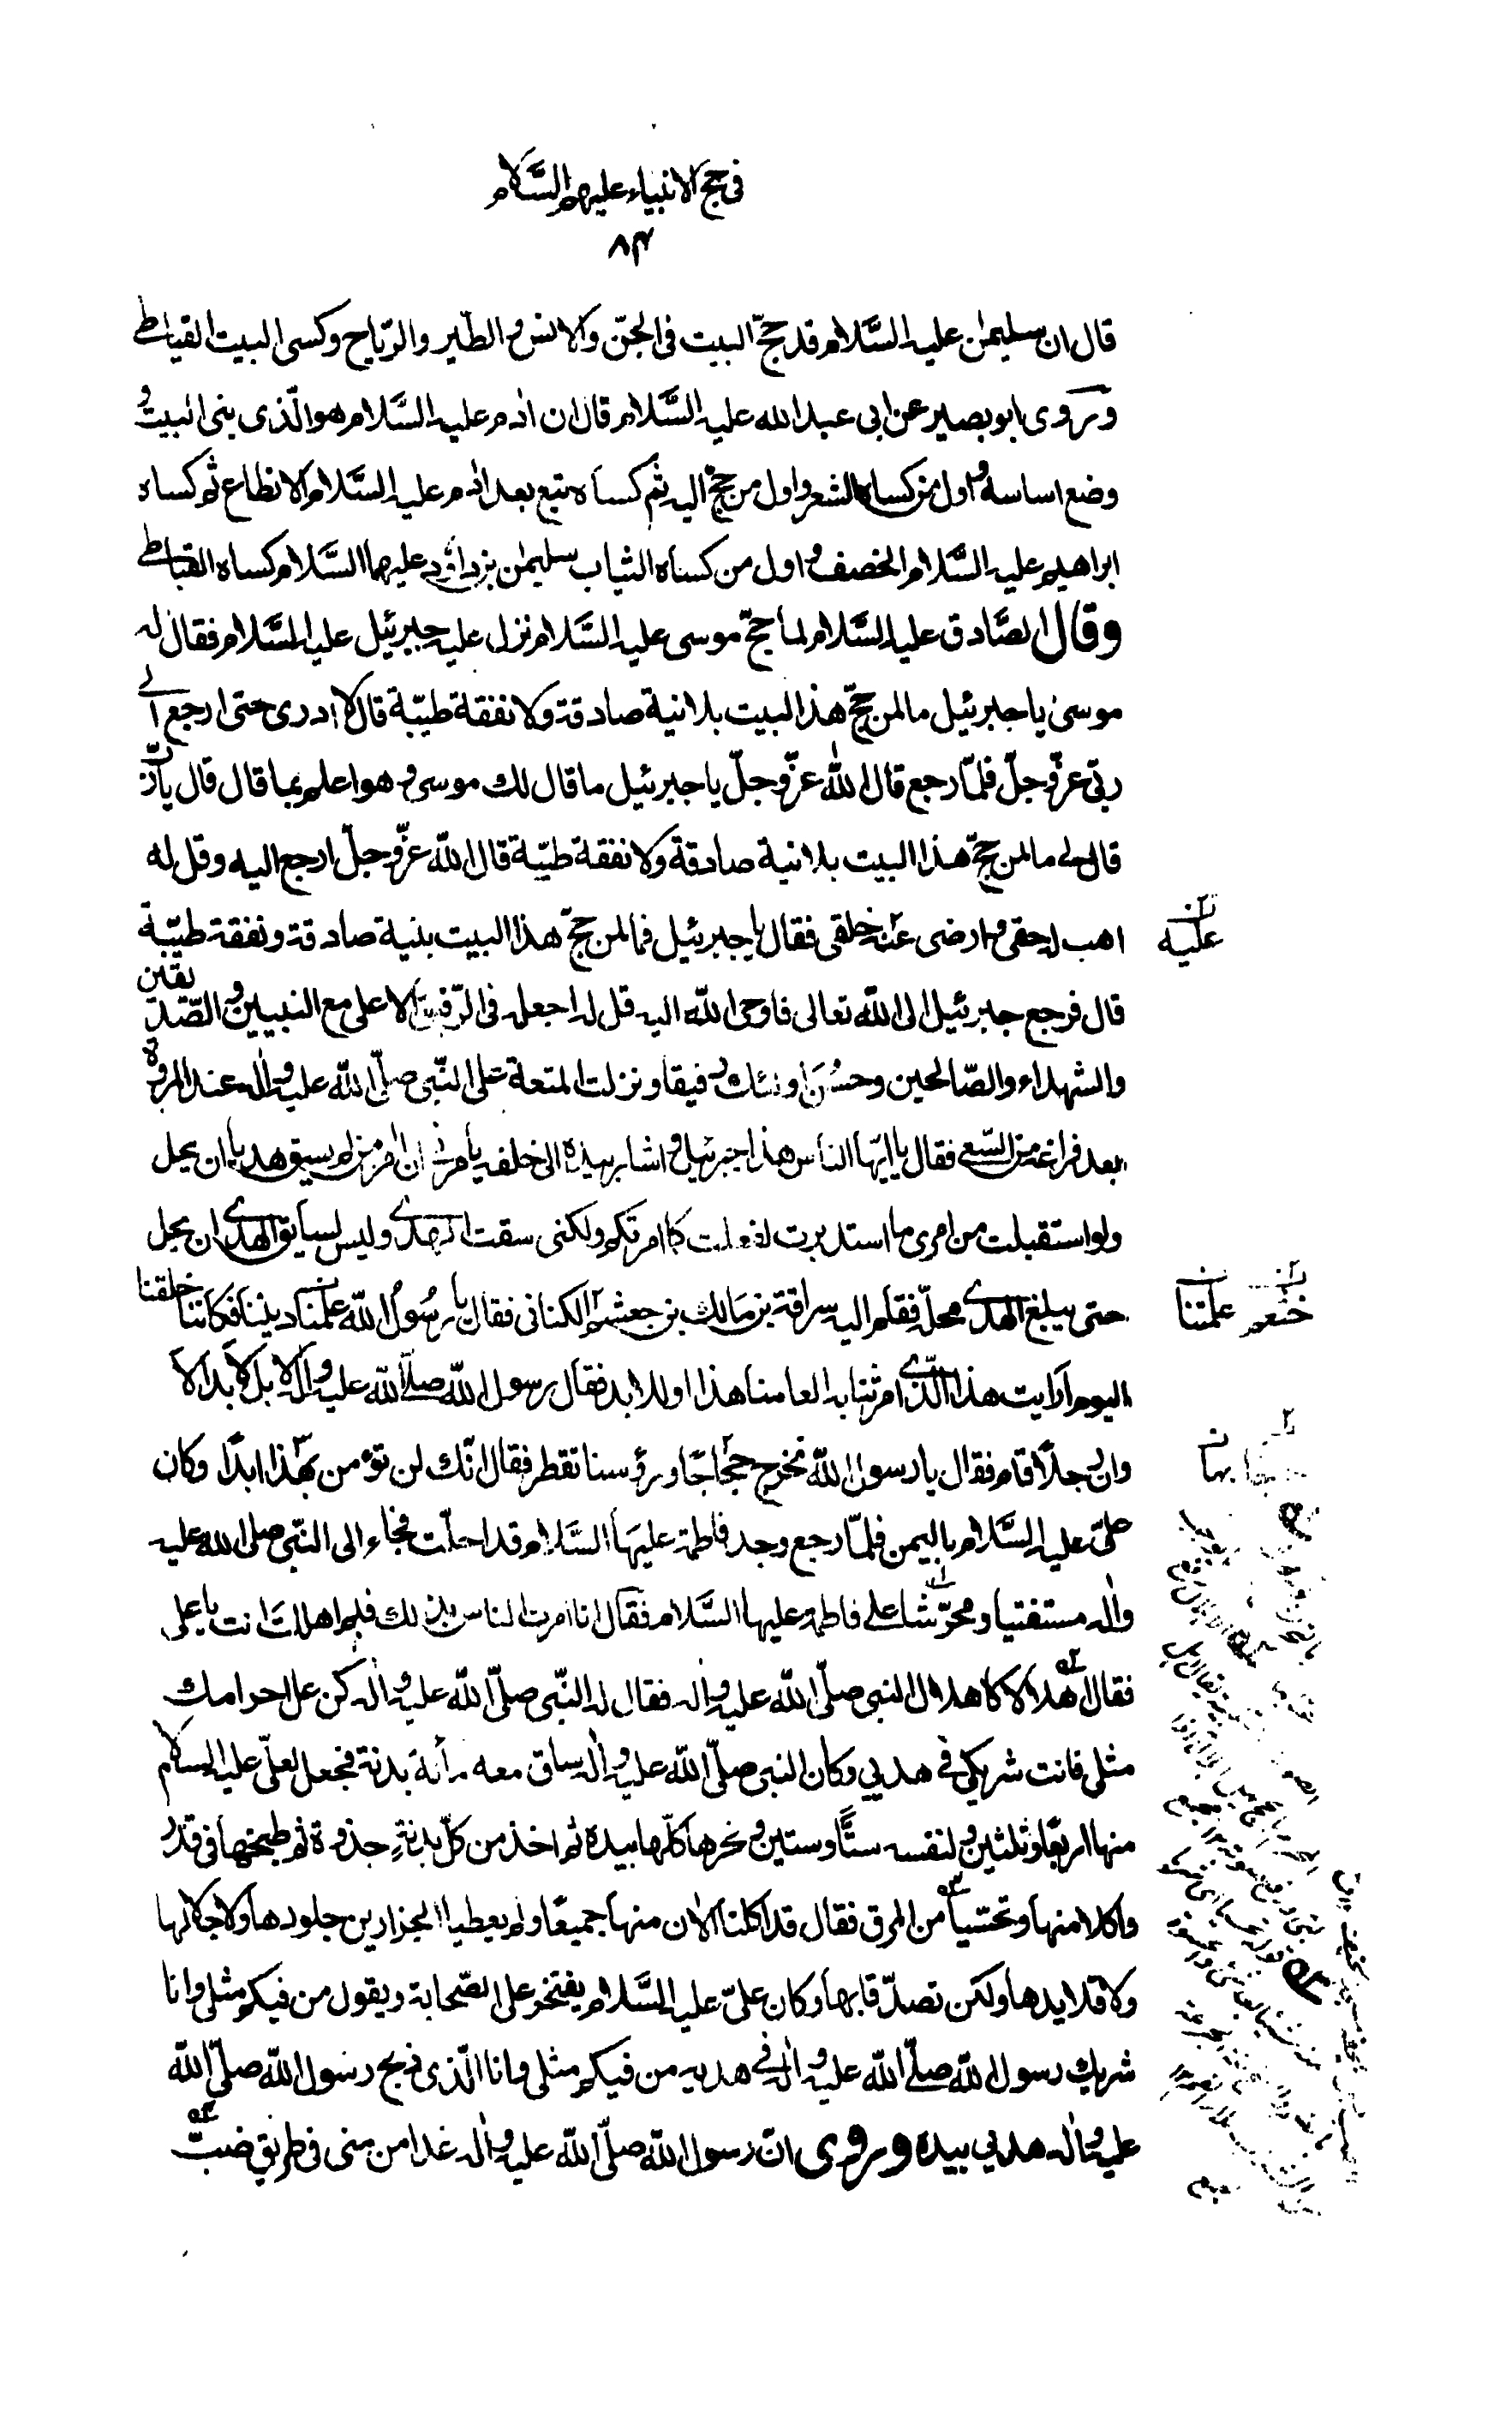 فى حج الانبياء عليهم السَّلام
٨٣
قال ان سليمن عليه السَّلام قد حجّ البيت فى الجنّ والانس و الطّير والرّياح وكسى البيت القباطى
وروى ابو بصير عن ابى عبد الله عليه السَّلام قال ان ادم عليه السَّلام هو الّذى بنى البيت و
وضع اساسه و اول من كساه الشعر و اول من حجّ اليه ثم كساه تبع بعد ادم عليه السَّلام الانطاع ثم كساه
ابراهيم عليه السَّلام الخصف و اول من كساه الثياب سليمن بن داود عليهما السَّلام كساه القباطى
وقال الصَّادق عليه السَّلام لما حجّ موسى عليه السَّلام نزل عليه جبرئيل عليه السَّلام فقال له
موسى يا جبرئيل ما لمن حجّ هذا البيت بلا نية صادقة ولا نفقة طيّبة قال لا ادرى حتى ارجع الى
ربّى عزّ وجلّ فلمّا رجع قال الله عزّ وجلّ يا جبرئيل ما قال لك موسى و هو اعلم بما قال قال يا ربّ
قال لى ما لمن حجّ هذا البيت بلا نية صادقة ولا نفقة طيّبة قال الله عزّ وجلّ ارجع اليه وقل له
اهب له حقى و ارضى عنه خلقى فقال يا جبرئيل فما لمن حجّ هذا البيت بنية صادقة ونفقة طيّبة
عليه
قال فرجع جبرئيل الى الله تعالى فاوحى الله اليه قل له اجعله فى الرّفيق الاعلى مع النبيين و الصّديقين
والشهداء والصّالحين وحسُنَ اولئك رفيقا ونزلت المتعة على النّبى صلّى الله عليه و اله عند المروة
بعد فراغه من السّعى فقال يا ايّها الناس هذا جبرئيل و اشار بيده الى خلفه يأمرنى ان امر من لم يسق هديا ان يحل
ولو استقبلت من امرى ما استدبرت لفعلت كما امرتكم ولكنى سقت الهدى وليس لسايق الهدى ان يحل
حتى يبلغ الهدى محلّه فقام اليه سراقة بن مالك بن جعشم الكنانى فقال يا رسُول الله علّمنا ديننا فكاننا خلقنا
خثعم علمتنا
اليوم ارايت هذا الّذى امرتنا به العامنا هذا او للابد فقال رسول الله صلّى الله عليه و اله لا بل لابد الا
وان رجلًا قام فقال يا رسول الله نخرج حجّاجًا ورؤسنا تقطر فقال انّك لن تؤمن بهذا ابدًا وكان
بها
علىّ عليه السَّلام باليمن فلمّا رجع وجد فاطمة عليهَا السَّلام قد احلّت فجاء الى النّبى صلى الله عليه
واله مستفتيا ومحرّشا على فاطمة عليها السَّلام فقال انا امرت الناس بذلك فبم اهللتَ انت يا على
فقال اهلالا كاهلال النبى صلّى الله عليه و اله فقال له النّبى صلّى الله عليه و اله كن على احرامك
مثلى فانت شريكى فى هديى وكان النبى صلّى الله عليه و اله ساق معه مأية بدنة فجعل لعلّى عليه السلام
منها اربعًا وثلثين و لنفسه ستًّا وستين و نحرها كلّها بيده ثم اخذ من كلّ بدنةٍ جذوة ثم طبخها فى قدر
واكلا منها وتحسّيا من المرق فقال قد اكلنا الان منها جميعًا ولم يعطيا الجزارين جلودها ولا جلالها
ولا قلايدها ولكن تصدّقا بها وكان علىّ عليه السَّلام يفتخر على الصّحابة ويقول من فيكم مثلى وانا
شريك رسول الله صلّى الله عليه و اله فى هديه من فيكم مثلى وانا الّذى ذبح رسول الله صلّى الله
عليه و اله هديى بيده وروى انّ رسول الله صلّى الله عليه و اله غدا من منى فى طريق ضبّ